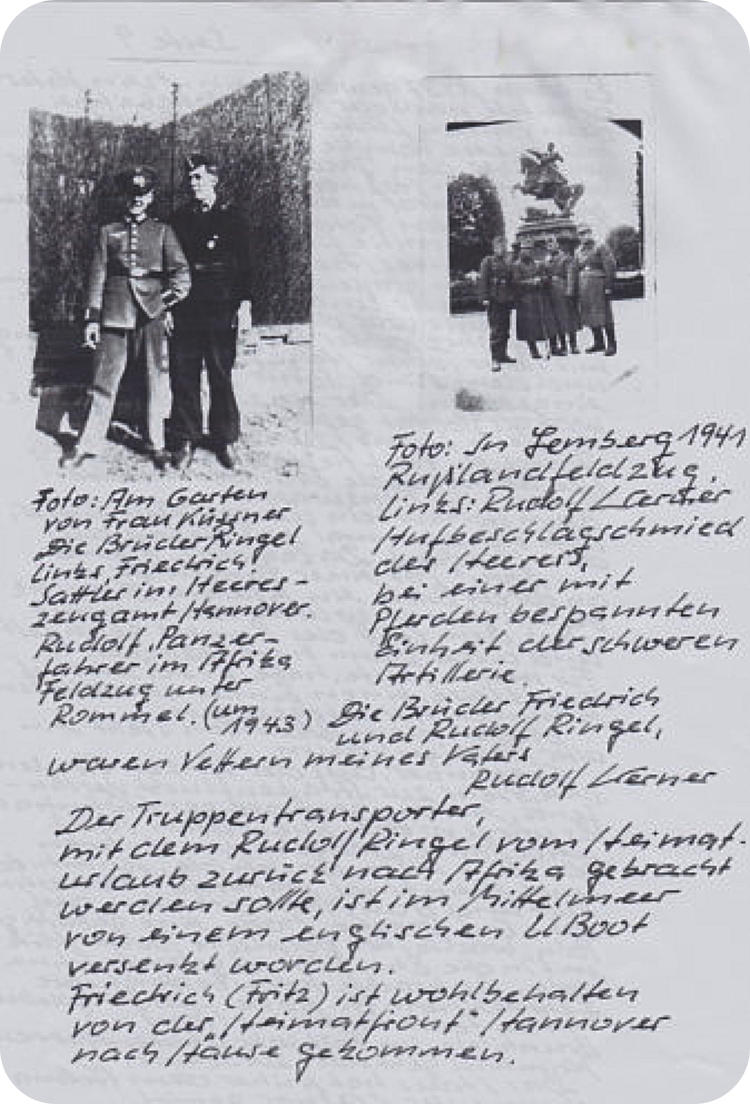 Foto: Am Garten
von Frau Küssner
Die Brüder Ringel
links, Friedrich.
Sattler im Heeres-
zeugamt Hannover.
Rudolf, Panzer-
fahrer im Afrika
Feldzug unter
Rommel. (um
1943)
Foto: In Lemberg 1941
Rußlandfeldzug.
links: Rudolf Werner
Hufbeschlagschmied
des Heeres,
bei einer mit
Pferden bespannten
Einheit der schweren
Artillerie.
Die Brüder Friedrich
und Rudolf Ringel,
waren Vettern meines Vaters
Rudolf Werner
Der Truppentransporter,
mit dem Rudolf Ringel vom Heimat-
urlaub zurück nach Afrika gebracht
werden sollte, ist im Mittelmeer
von einem englischen U Boot
versenkt worden.
Friedrich (Fritz) ist wohlbehalten
von der „Heimatfront" Hannover
nach Hause gekommen.